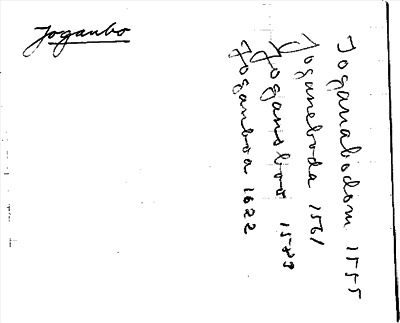 Joganbo
Joganabodom 1555
Joganeboda 1561
Jogansboo 1583
Joganboa 1622